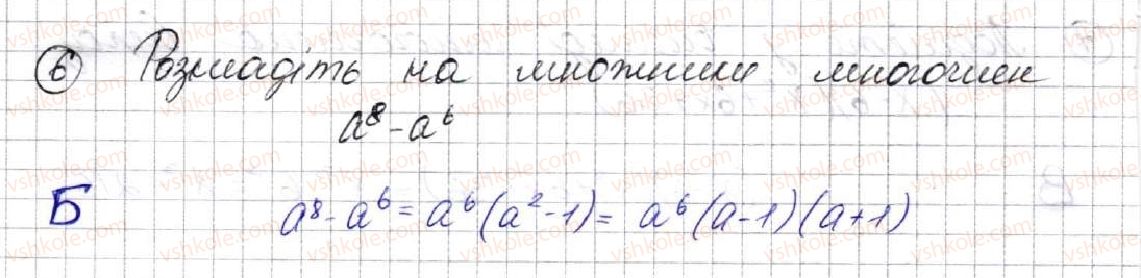 ⑥ Розкладіть на множники многочлен
a⁸-a⁶
Б a⁸-a⁶=a⁶(a²-1)= a⁶(a-1)(a+1)